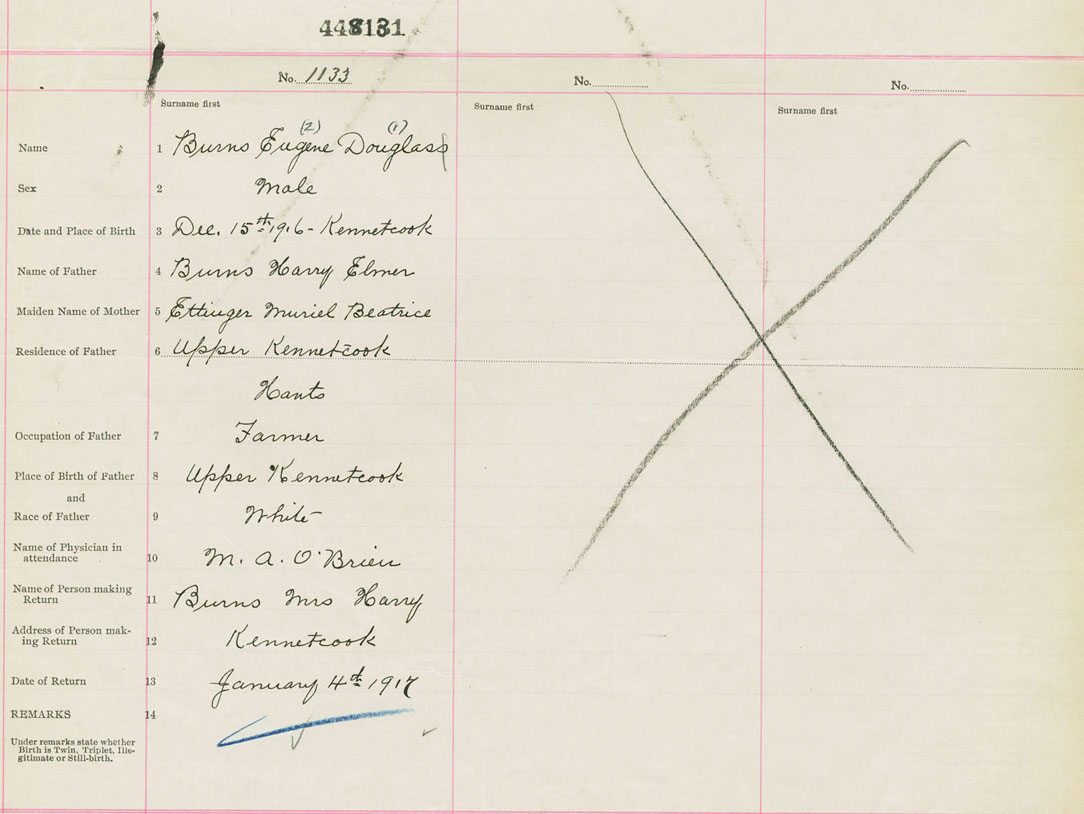 448131
No. 1133
No.
No.
Surname first
Surname first
Surname first
(2) (1)
Name 1 Burns Eugene Douglass
Sex 2 Male
Date and Place of Birth 3 Dec. 15th 1916 - Kennetcook
Name of Father 4 Burns Harry Elmer
Maiden Name of Mother 5 Ettinger Muriel Beatrice
Residence of Father 6 Upper Kennetcook
Hants
Occupation of Father 7 Farmer
Place of Birth of Father 8 Upper Kennetcook
and
Race of Father 9 White
Name of Physician in
attendance 10 M. A. O'Brien
Name of Person making
Return 11 Burns Mrs Harry
Address of Person mak-
ing Return 12 Kennetcook
Date of Return 13 January 4th 1917
REMARKS 14
Under remarks state whether
Birth is Twin, Triplet, Ille-
gitimate or Still-birth.